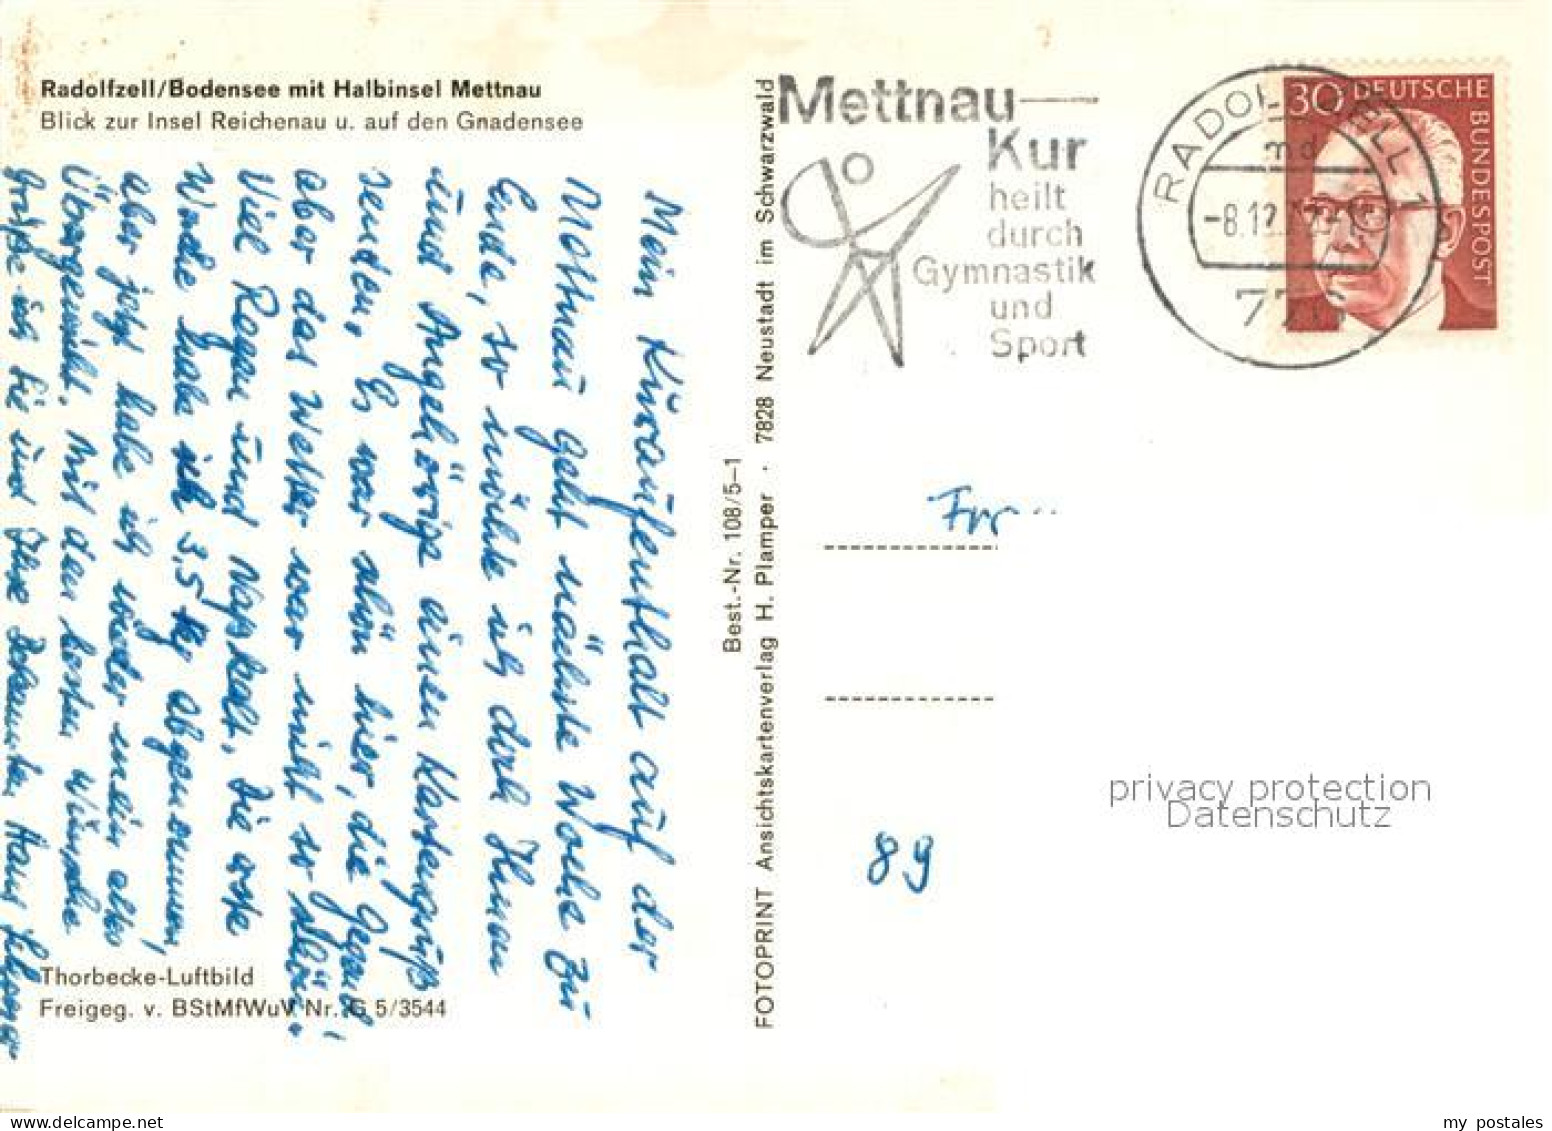 Radolfzell/Bodensee mit Halbinsel Mettnau
Blick zur Insel Reichenau u. auf den Gnadensee
Mein Kuraufenthalt auf der
Mettnau geht nächste Woche zu
Ende, so möchte ich doch Ihnen
und Angehörige einen Kartengruß
senden. Es war schön hier, die Gegend,
aber das Wetter war nicht so schön.
Viel Regen und Naßkalt. Die erste
Woche habe ich 3,5 kg abgenommen,
aber jetzt habe ich wieder mein altes
Übergewicht. Mit den besten Wünsche
grüße ich Sie und Ihre Bekannten Hans
Thorbecke-Luftbild
Freigeg. v. BStMfWuV Nr. G 5/3544
Best.-Nr. 108/5–1
FOTOPRINT Ansichtskartenverlag H. Plamper · 7828 Neustadt im Schwarzwald
Mettnau
Kur
heilt
durch
Gymnastik
und
Sport
RADOLFZELL 1
md
-8.12.
776
30 DEUTSCHE
BUNDESPOST
89
privacy protection
Datenschutz
my postales